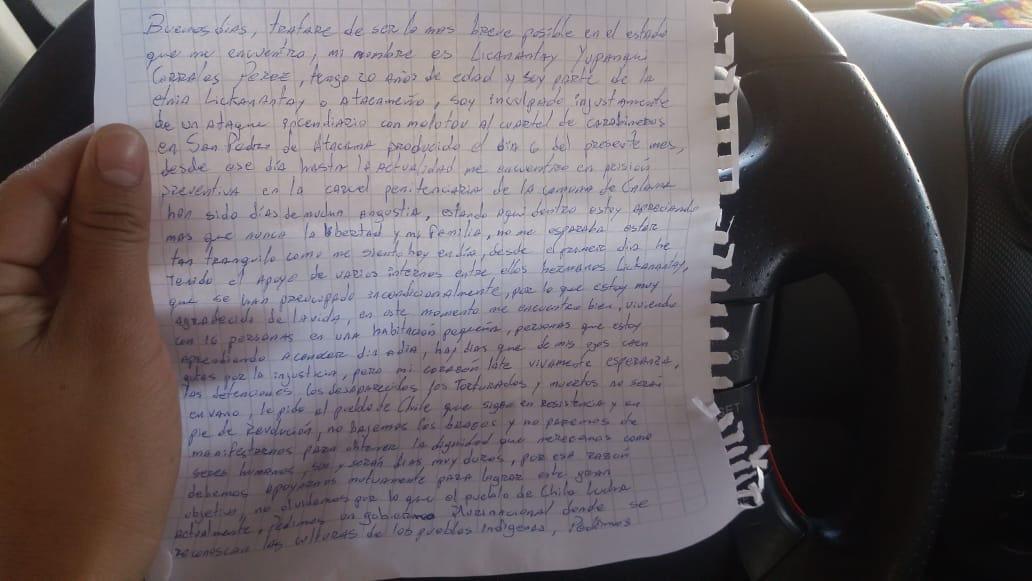 Buenos dias, tratare de ser lo mas breve posible en el estado
que me encuentro, mi nombre es Lickanantay Yupanqui
Corrales Perez, tengo 20 años de edad y soy parte de la
etnia Lickanantay o Atacameño, soy inculpado injustamente
de un ataque incendiario con molotov al cuartel de carabineros
en San Pedro de Atacama producido el dia 6 del presente mes,
desde ese dia hasta la actualidad me encuentro en prisión
preventiva en la carcel penitenciaria de la comuna de Calama
han sido dias de mucha angustia, estando aqui dentro estoy apreciando
mas que nunca la libertad y mi familia, no me esperaba estar
tan tranquilo como me siento hoy en dia, desde el primer dia he
tenido el apoyo de varios internos entre ellos hermanos Lickanantay,
que se han preocupado incondicionalmente, por lo que estoy muy
agradecido de la vida, en este momento me encuentro bien, viviendo
con 16 personas en una habitación pequeña, personas que estoy
aprendiendo a conocer dia a dia, hay dias que de mis ojos caen
gotas por la injusticia, pero mi corazon late vivamente esperanza,
las detenciones, los desaparecidos los torturados y muertos no serán
en vano, le pido al pueblo de Chile que sigan en resistencia y en
pie de Revolución, no bajemos los brazos y no paremos de
manifestarnos para obtener la dignidad que merecemos como
seres humanos, son y serán dias muy duros, por esa razón
debemos apoyarnos mutuamente para lograr este gran
objetivo, no olvidemos que lo que el pueblo de Chile lucha
actualmente, pedimos un gobierno Plurinacional donde se
reconoscan las culturas de los pueblos indigenas, Pedimos